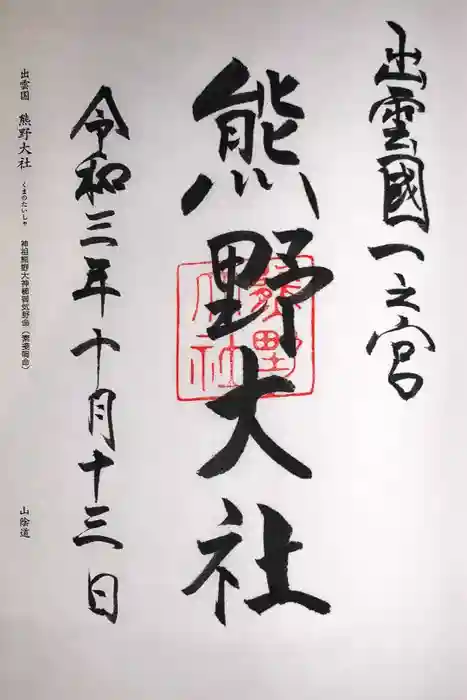 出雲國一之宮
熊野大社
熊野大社
令和三年十月十三日
出雲国 熊野大社 くまのたいしゃ 神祖熊野大神櫛御気野命(素戔嗚命) 山陰道